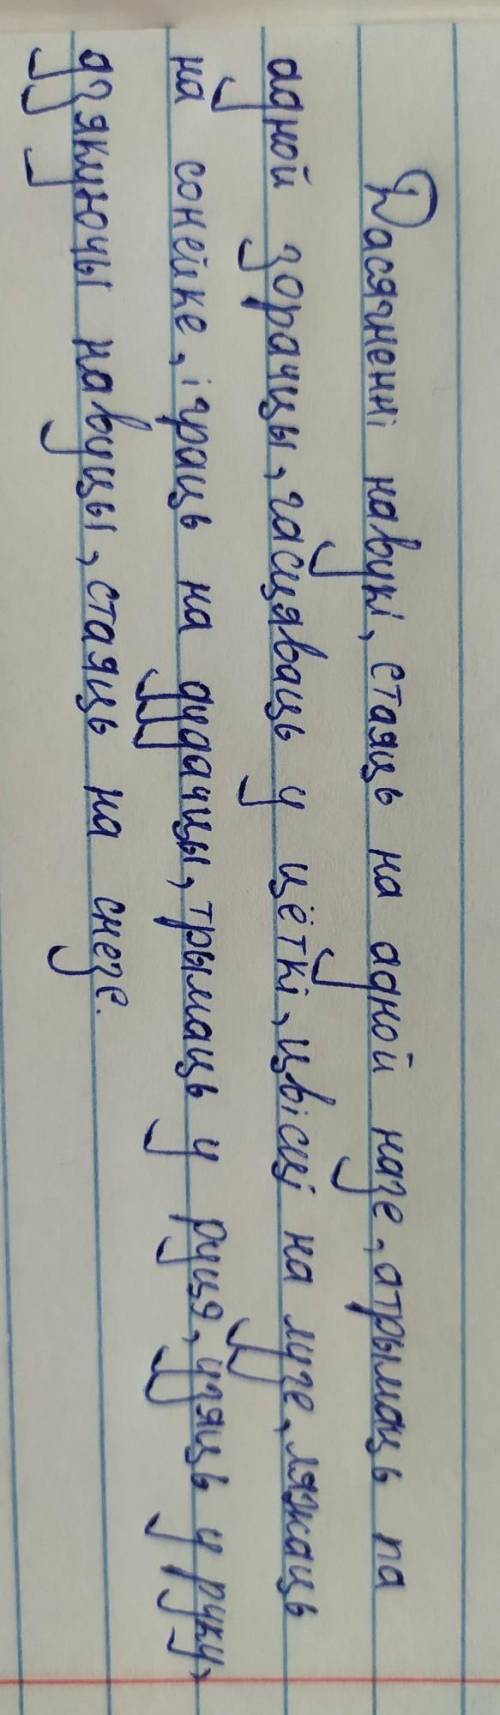 Дасягненні навукі, стаяць на адной назе, атрымаць па
адной зорачцы, гасцяваць у цёткі, цвісці на лузе, ляжаць
на сонейке, іграць на дудачцы, трымаць у руця, узяць у руку,
дзякуючы навуцы, стаяць на снезе.